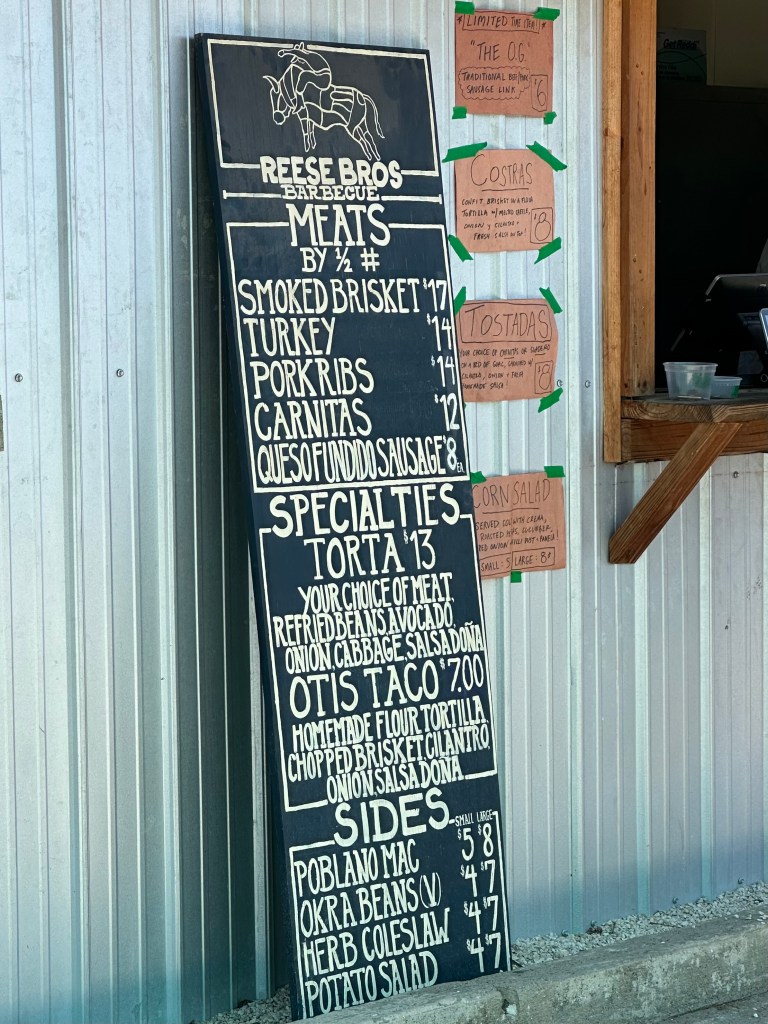 REESE BROS
BARBECUE
MEATS
BY ½ #
SMOKED BRISKET $17
TURKEY $14
PORK RIBS $14
CARNITAS $12
QUESO FUNDIDO SAUSAGE $8 EA
SPECIALTIES
TORTA $13
YOUR CHOICE OF MEAT,
REFRIED BEANS, AVOCADO,
ONION, CABBAGE, SALSA DOÑA
OTIS TACO $7.00
HOMEMADE FLOUR TORTILLA,
CHOPPED BRISKET, CILANTRO,
ONION, SALSA DOÑA
SIDES
SMALL LARGE
POBLANO MAC $5 $8
OKRA BEANS (V) $4 $7
HERB COLESLAW $4 $7
POTATO SALAD $4 $7
LIMITED TIME ITEM!
"THE O.G."
TRADITIONAL BEEF/PORK
SAUSAGE LINK $6
COSTRAS
CONFIT BRISKET IN A FLOUR
TORTILLA W/ MELTED CHEESE,
ONION Y CILANTRO +
FRESH SALSA ON TOP! $8
TOSTADAS
YOUR CHOICE OF CARNITAS OR
ON A BED OF GUAC, GARNISHED W/
CILANTRO, ONION + FRESH
HOMEMADE SALSA $8
CORN SALAD
SERVED COLD WITH CREMA,
ROASTED PEPS, CUCUMBER,
RED ONION,
SMALL: 5 LARGE: 8